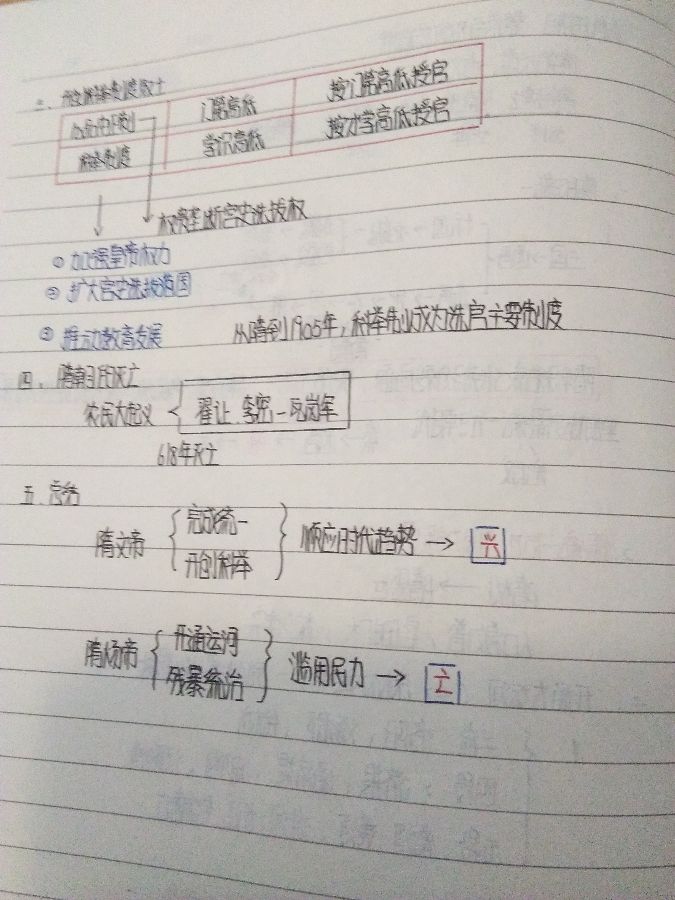 三、开创科举制度取士
门第高低 按门第高低授官
科举制度 学识高低 按才学高低授官
权贵垄断官吏选拔权
① 加强皇帝权力
② 扩大官吏选拔范围
③ 推动教育发展 从隋到1905年，科举制成为选官主要制度
四、隋朝的灭亡
农民大起义 翟让 李密—瓦岗军
618年灭亡
五 总结
隋文帝 完成统一 开创科举 顺应时代趋势 → 兴
隋炀帝 开通运河 残暴统治 滥用民力 → 亡